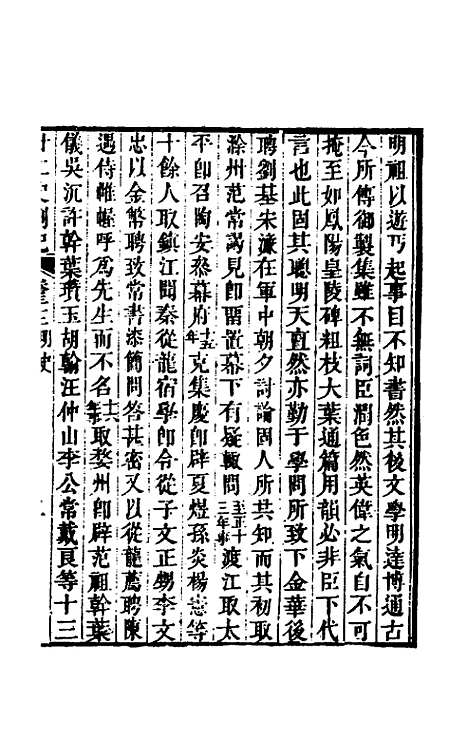 明祖以遊丐起事目不知書然其後文學明達博通古
今所傳御製集雖不無詞臣潤色然英偉之氣自不可
掩至如鳳陽皇陵碑粗枝大葉通篇用韻必非臣下代
言也此固其聰明天亶然亦勤于學問所致下金華後
聘劉基宋濂在軍中朝夕討論固人所共知而其初取
滁州范常謁見卽畱置幕下有疑輒問至正十三年事渡江取太
平卽召陶安叅幕府十五年克集慶卽辟夏煜孫炎楊憲等
十餘人取鎮江聞秦從龍宿學卽令從子文正甥李文
忠以金幣聘致常書漆簡問答甚密又以從龍薦聘陳
遇侍帷幄呼爲先生而不名十六年事取婺州卽辟范祖幹葉
儀吳沉許幹葉瓚玉胡翰汪仲山李公常戴良等十三
廿二史劄記